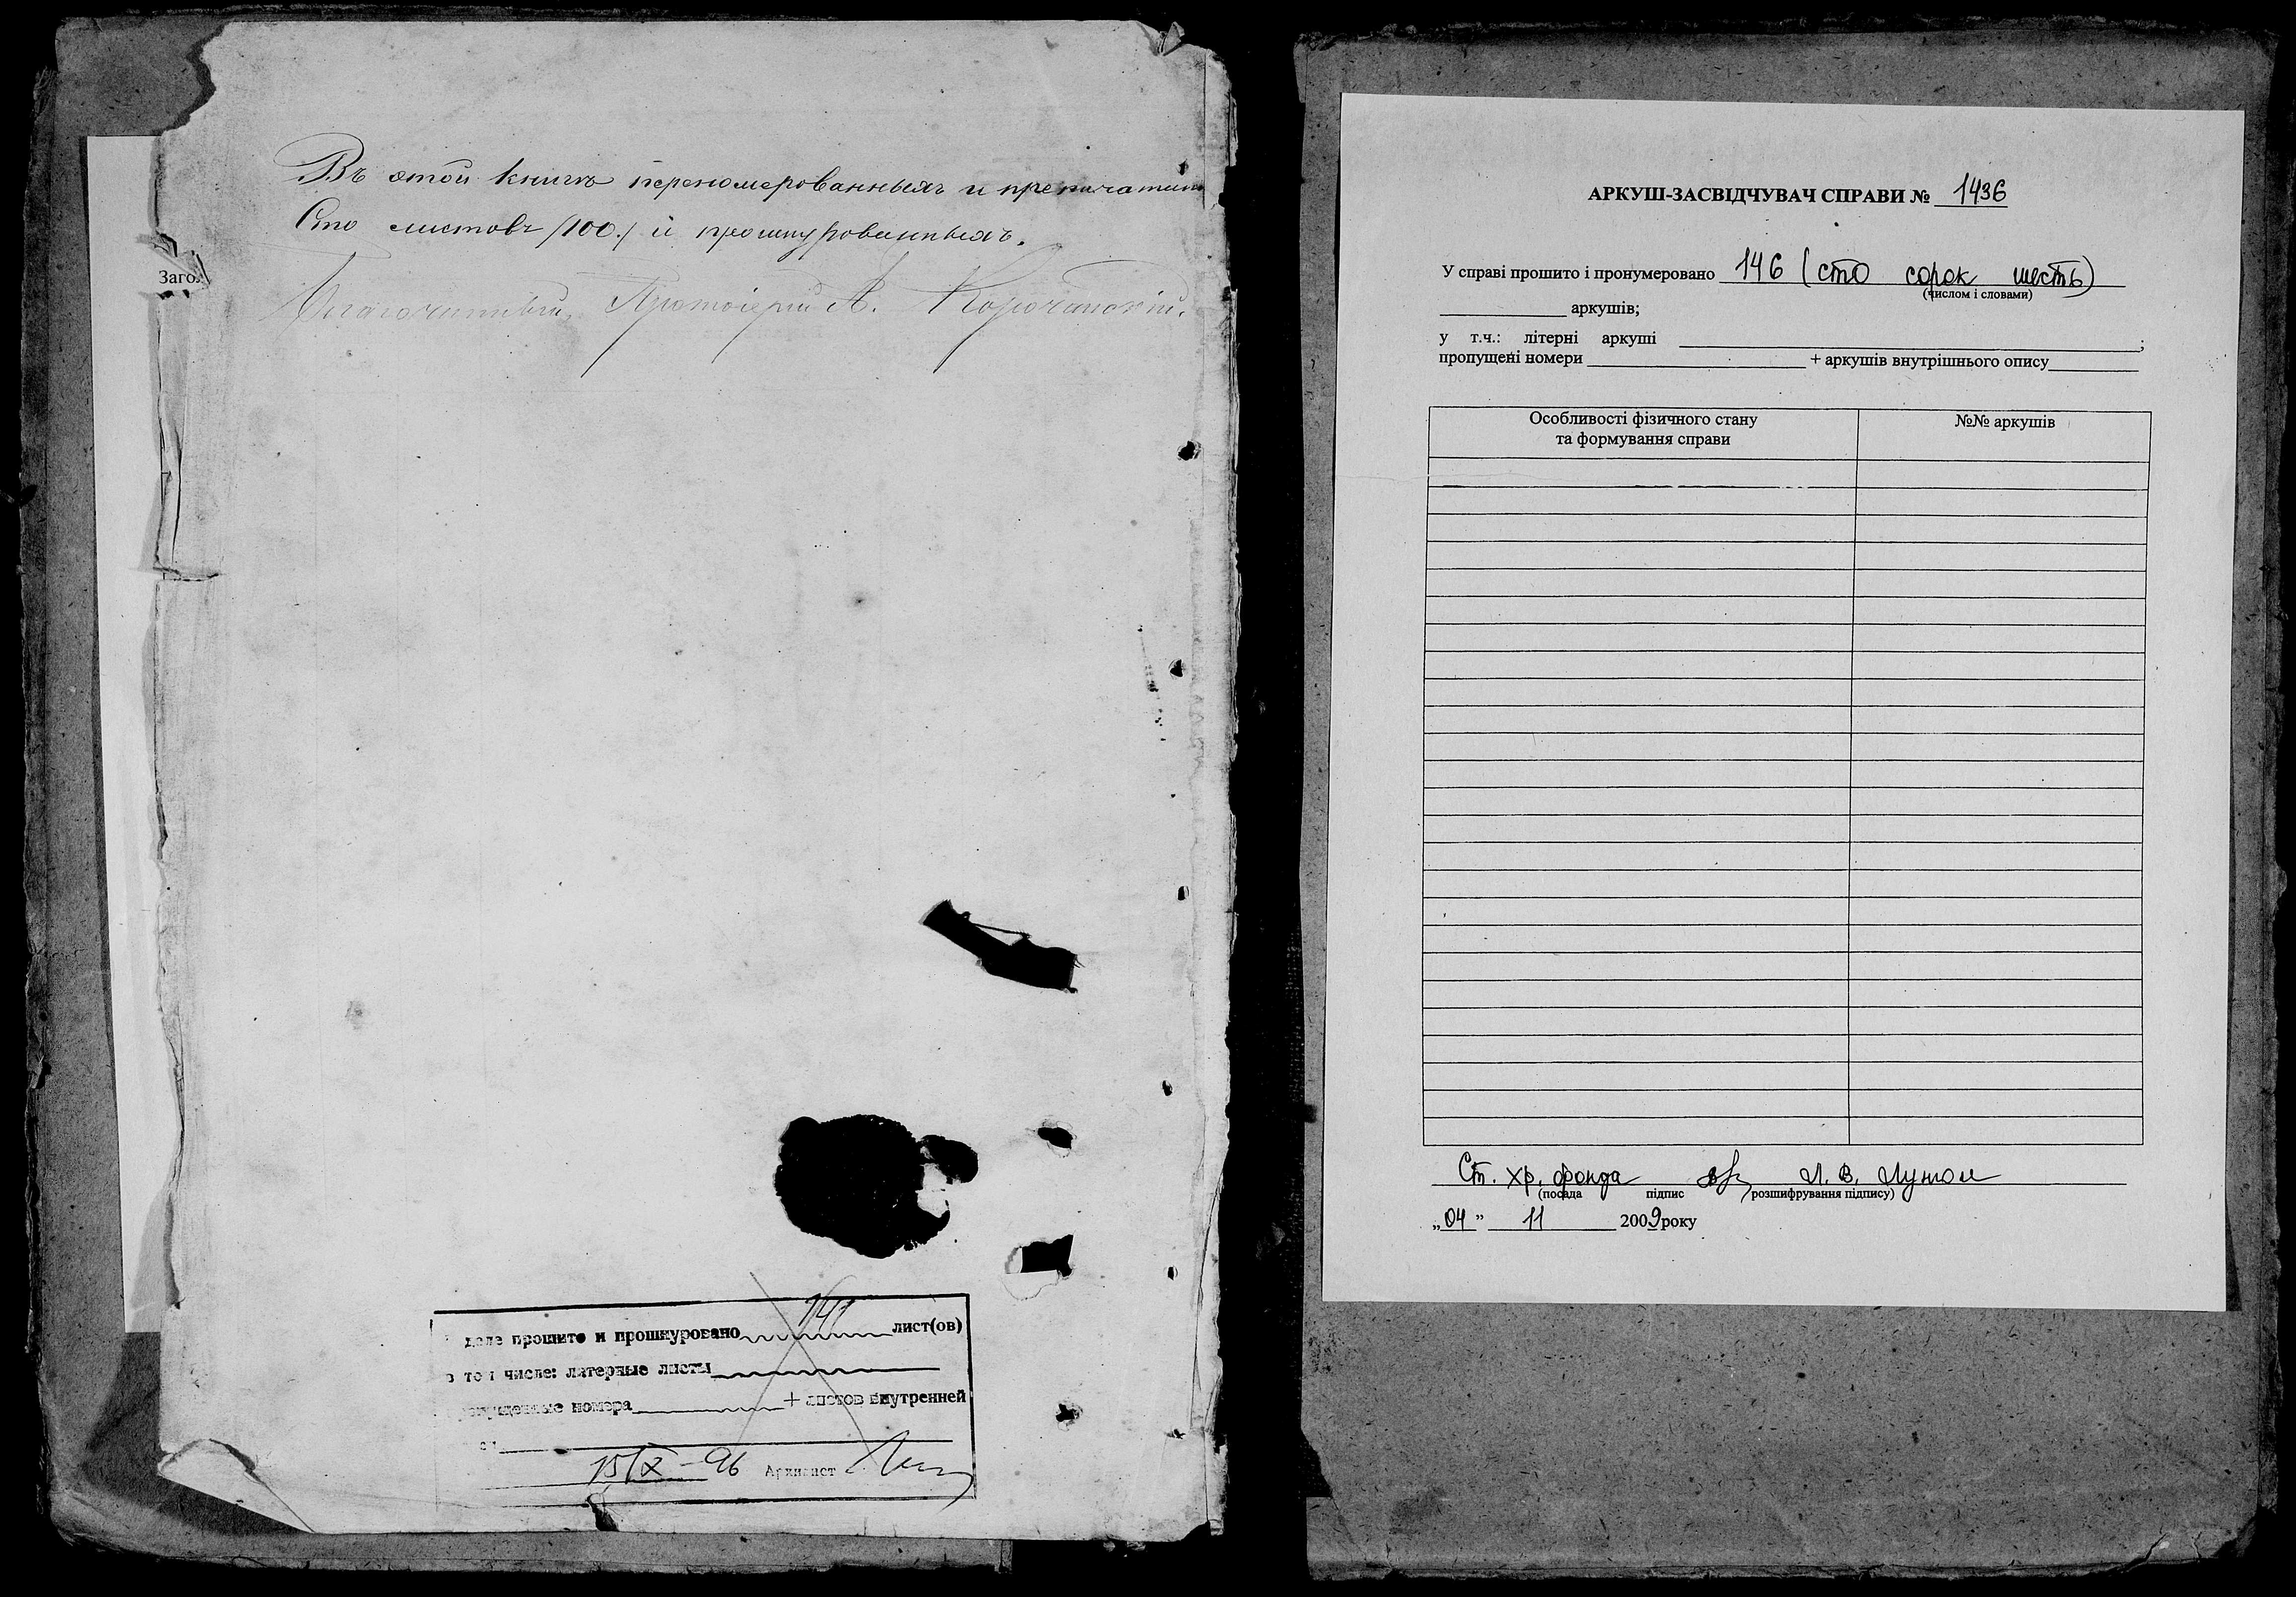 Въ этой книгѣ перенумерованныхъ и
Сто листовъ /100./ и прошнурованныхъ.
Благочинный, Протоіерей А. Корочанскій.
Заго
деле прошито и прошнуровано 141 лист(ов)
в том числе: литерные листы
номера + листов внутренней
15/X-96 Архивист
АРКУШ-ЗАСВІДЧУВАЧ СПРАВИ № 1436
У справі прошито і пронумеровано 146 (сто сорок шесть)
(числом і словами)
аркушів;
у т.ч.: літерні аркуші ;
пропущені номери + аркушів внутрішнього опису
Особливості фізичного стану
та формування справи
№№ аркушів
Ст. хр. фонда Л. В.
(посада підпис розшифрування підпису)
„04” 11 2009року